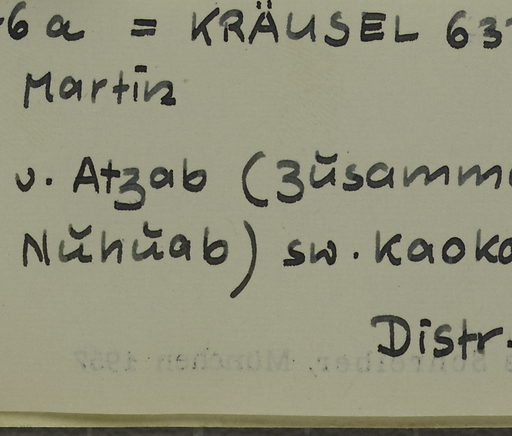 6a = KRÄUSEL 63
Martin
v. Atzab (zŭsamm
Nŭhŭab) sw. Kaoko
Distr.
Schreiber, München 1957